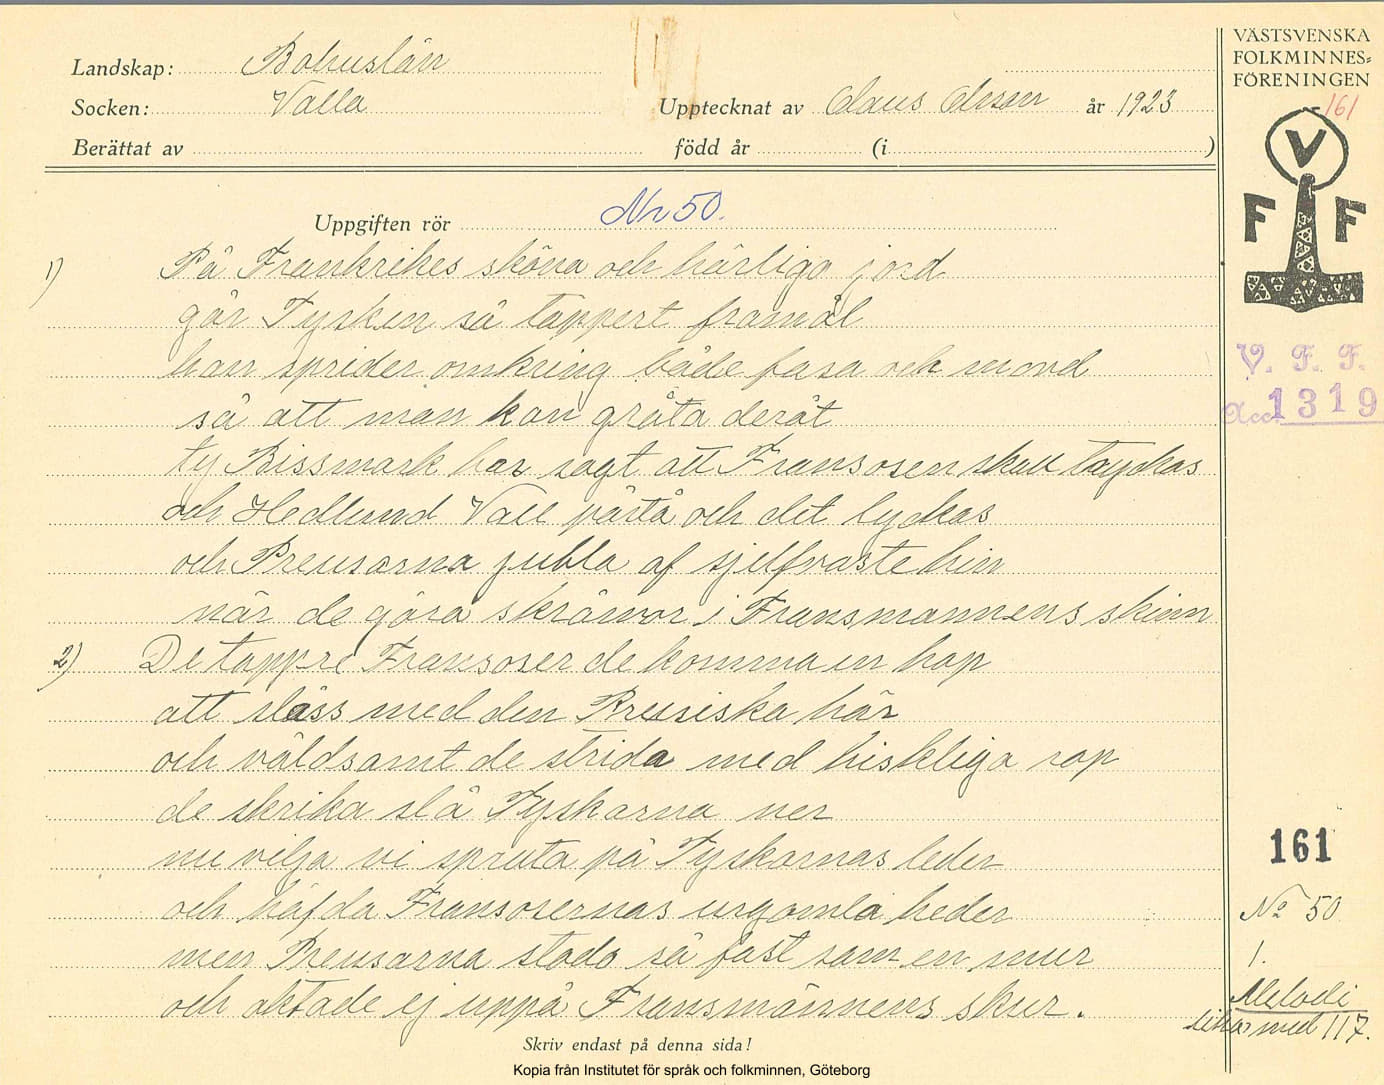 Landskap: Bohuslän
Socken: Valla
Upptecknat av Claus Olsson år 1923
Berättat av
född år (i )
VÄSTSVENSKA
FOLKMINNES=
FÖRENINGEN
161
V
F F
V. F. F.
Acc. 1319
Uppgiften rör Nr 50.
1) På Frankrikes sköna och härliga jord
går Tysken så tappert framåt
han sprider omkring både fasa och mord
så att man kan gråta deråt
ty Bissmark har sagt att Fransosen skall tryckas
och Hedlund Vall påstå och det lyckas
och Preusarna jubla af sjelfvaste hin
när de göra skråmor i Fransmannens skinn
2) De tappre Fransoser de komma in hop
att slåss med den Preusiska här
och våldsamt de strida med hiskliga rop
de skrika slå Tyskarna ner
nu vilja vi spruta på Tyskarnas leder
och häfda Fransosernas urgamla heder
men Preusarna stodo så fast som en mur
och aktade ej uppå Fransmännens skur.
161
No 50
1.
Melodi
lika med 117.
Skriv endast på denna sida!
Kopia från Institutet för språk och folkminnen, Göteborg